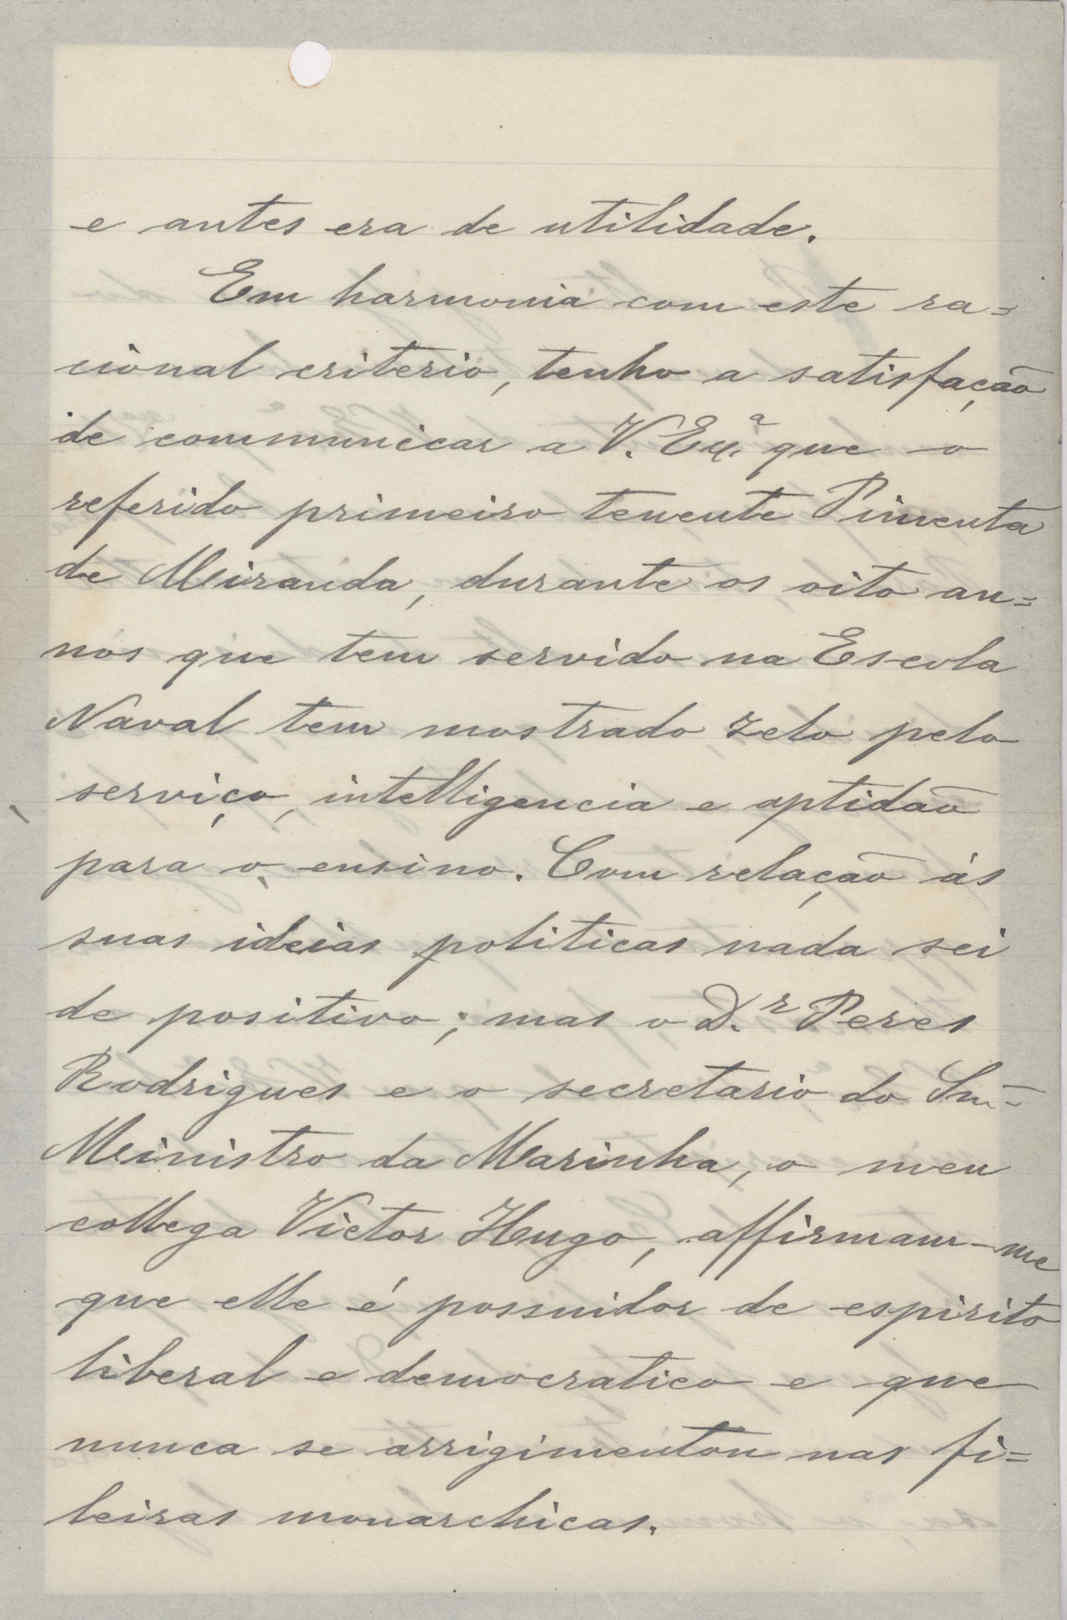 e antes era de utilidade.
Em harmonia com este ra=
cional criterio, tenho a satisfação
de communicar a V. Exª. que o
referido primeiro tenente Pimenta
de Miranda, durante os oito an=
nos que tem servido na Escola
Naval tem mostrado zelo pelo
serviço, intelligencia e aptidão
para o ensino. Com relação ás
suas ideias politicas nada sei
de positivo; mas o D.r Peres
Rodrigues e o secretario do Snr.
Ministro da Marinha, o meu
collega Victor Hugo, affirmam-me
que elle é possuidor de espirito
liberal e democratico e que
nunca se arrigimentou nas fi=
leiras monarchicas.